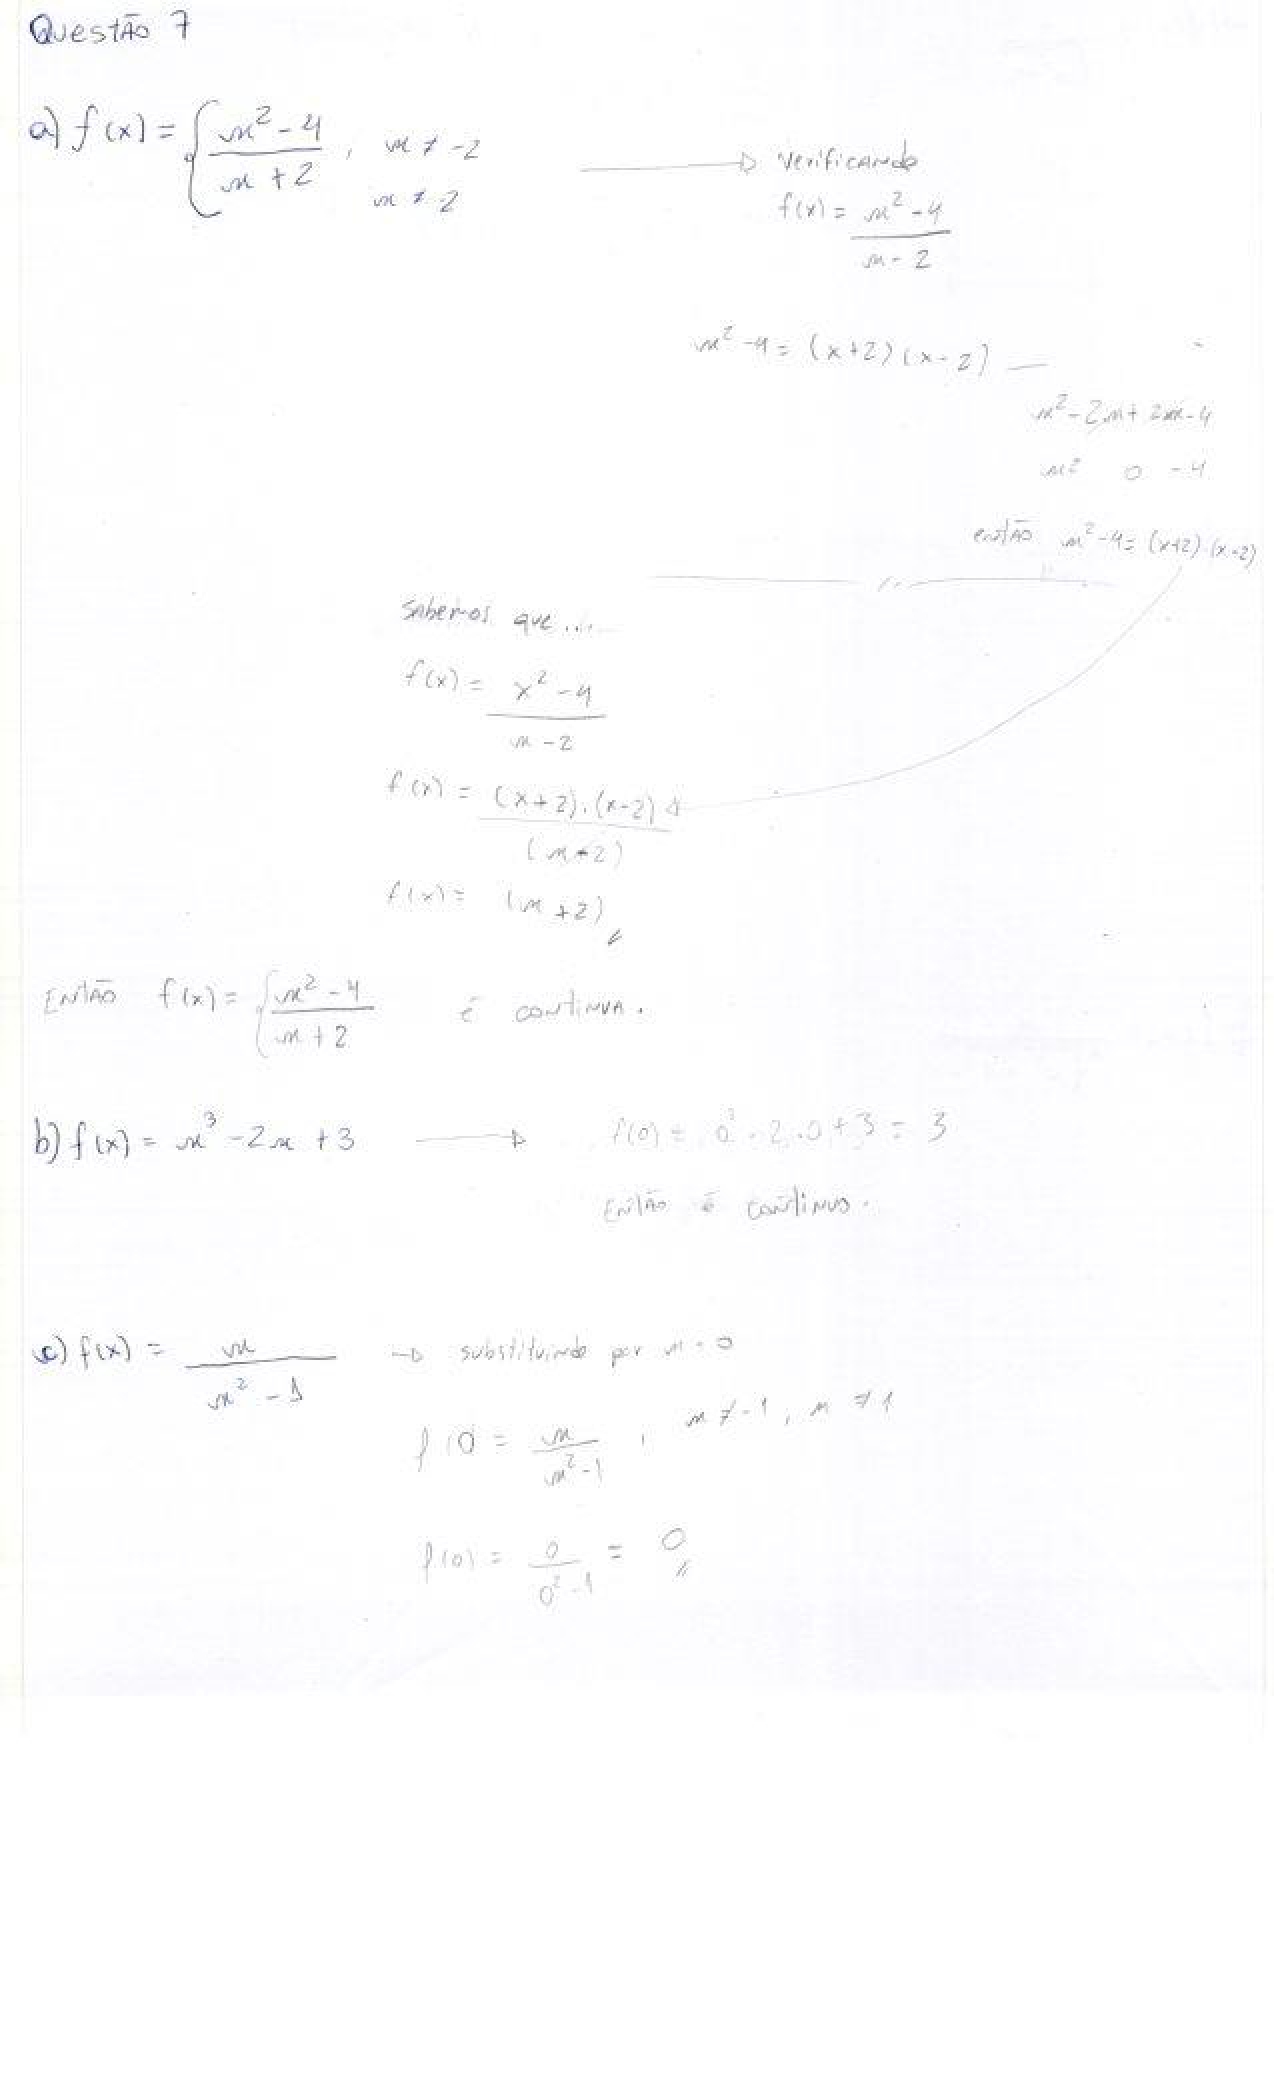 Questão 7
a) f(x) = { x² - 4 / x + 2 , x ≠ -2
x ≠ 2
→ Verificando
f(x) = x² - 4 / x - 2
x² - 4 = (x+2)(x-2) —
x² - 2x + 2x - 4
x² 0 - 4
então x² - 4 = (x+2).(x-2)
Sabemos que ....
f(x) = x² - 4 / x - 2
f(x) = (x+2).(x-2) / (x-2)
f(x) = (x+2)
Então f(x) = { x² - 4 / x + 2 é contínua.
b) f(x) = x³ - 2x + 3 → f(0) = 0³ - 2.0 + 3 = 3
Então é contínuo.
c) f(x) = x / x² - 1 → substituindo por x = 0
f(0 = x / x² - 1 , x ≠ -1, x ≠ 1
f(0) = 0 / 0² - 1 = 0